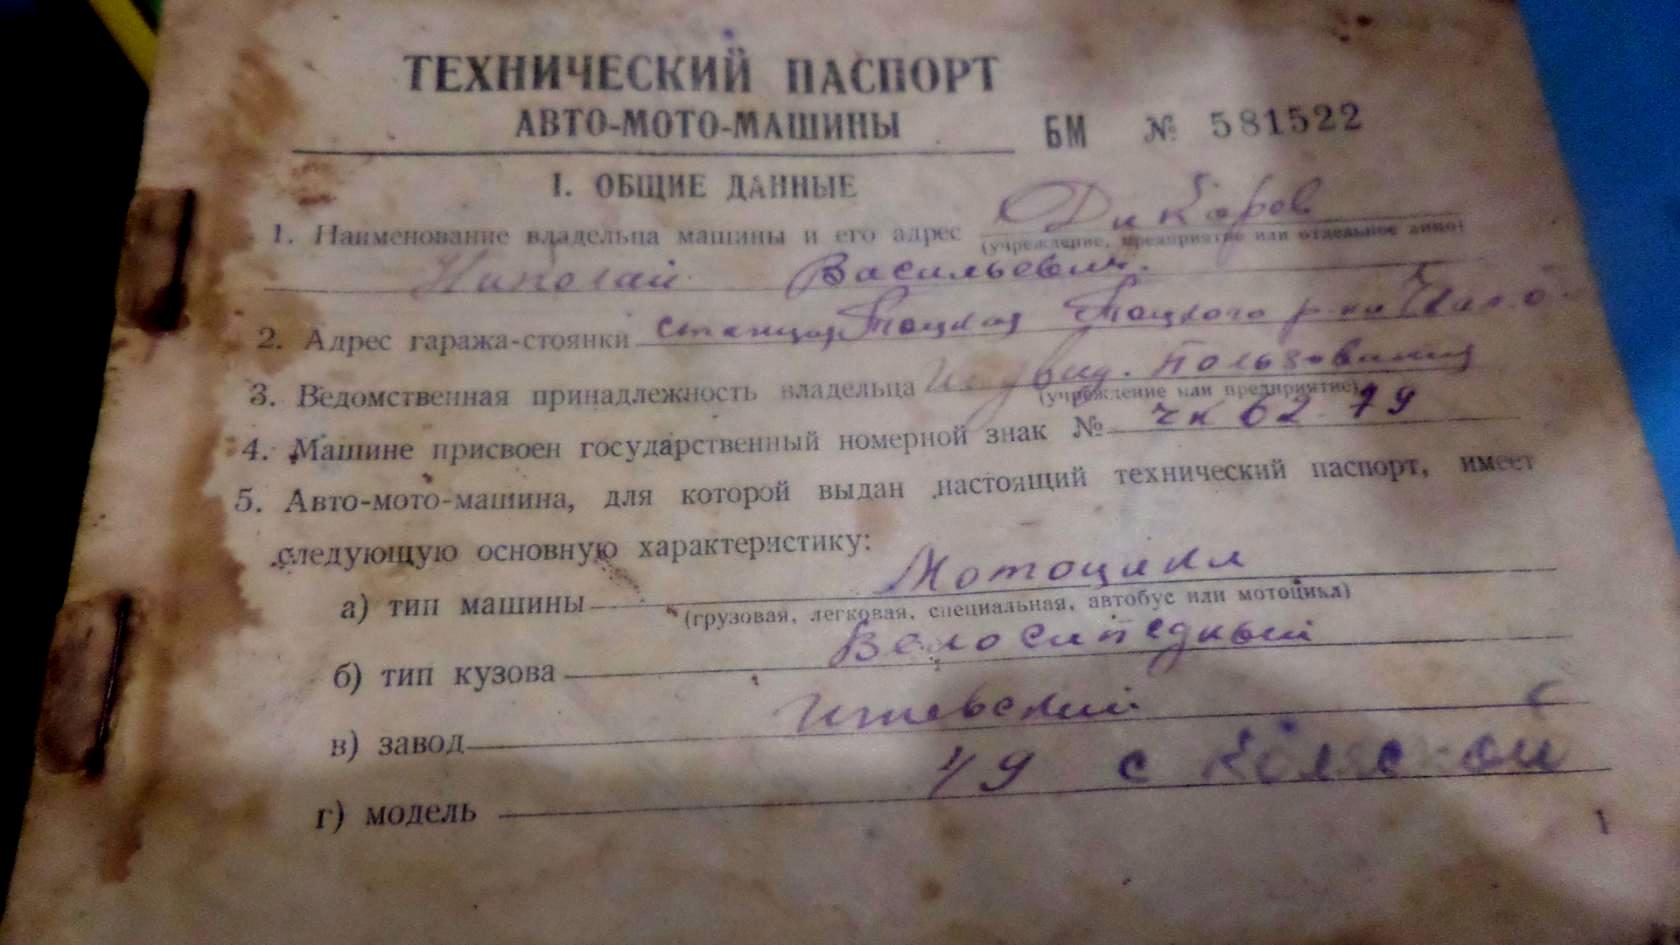 ТЕХНИЧЕСКИЙ ПАСПОРТ
АВТО-МОТО-МАШИНЫ
БМ № 581522
I. ОБЩИЕ ДАННЫЕ
1. Наименование владельца машины и его адрес Дикарев
(учреждение, предприятие или отдельное лицо)
Николай Васильевич.
2. Адрес гаража-стоянки станция Тоцкая Тоцкого р-на
3. Ведомственная принадлежность владельца Индвид. пользования
(учреждение или предприятие)
4. Машине присвоен государственный номерной знак № чк 62-79
5. Авто-мото-машина, для которой выдан настоящий технический паспорт, имеет
следующую основную характеристику:
а) тип машины Мотоцикл
(грузовая, легковая, специальная, автобус или мотоцикл)
б) тип кузова Велосипедный
в) завод Ижевский
г) модель 49 с коляской
1